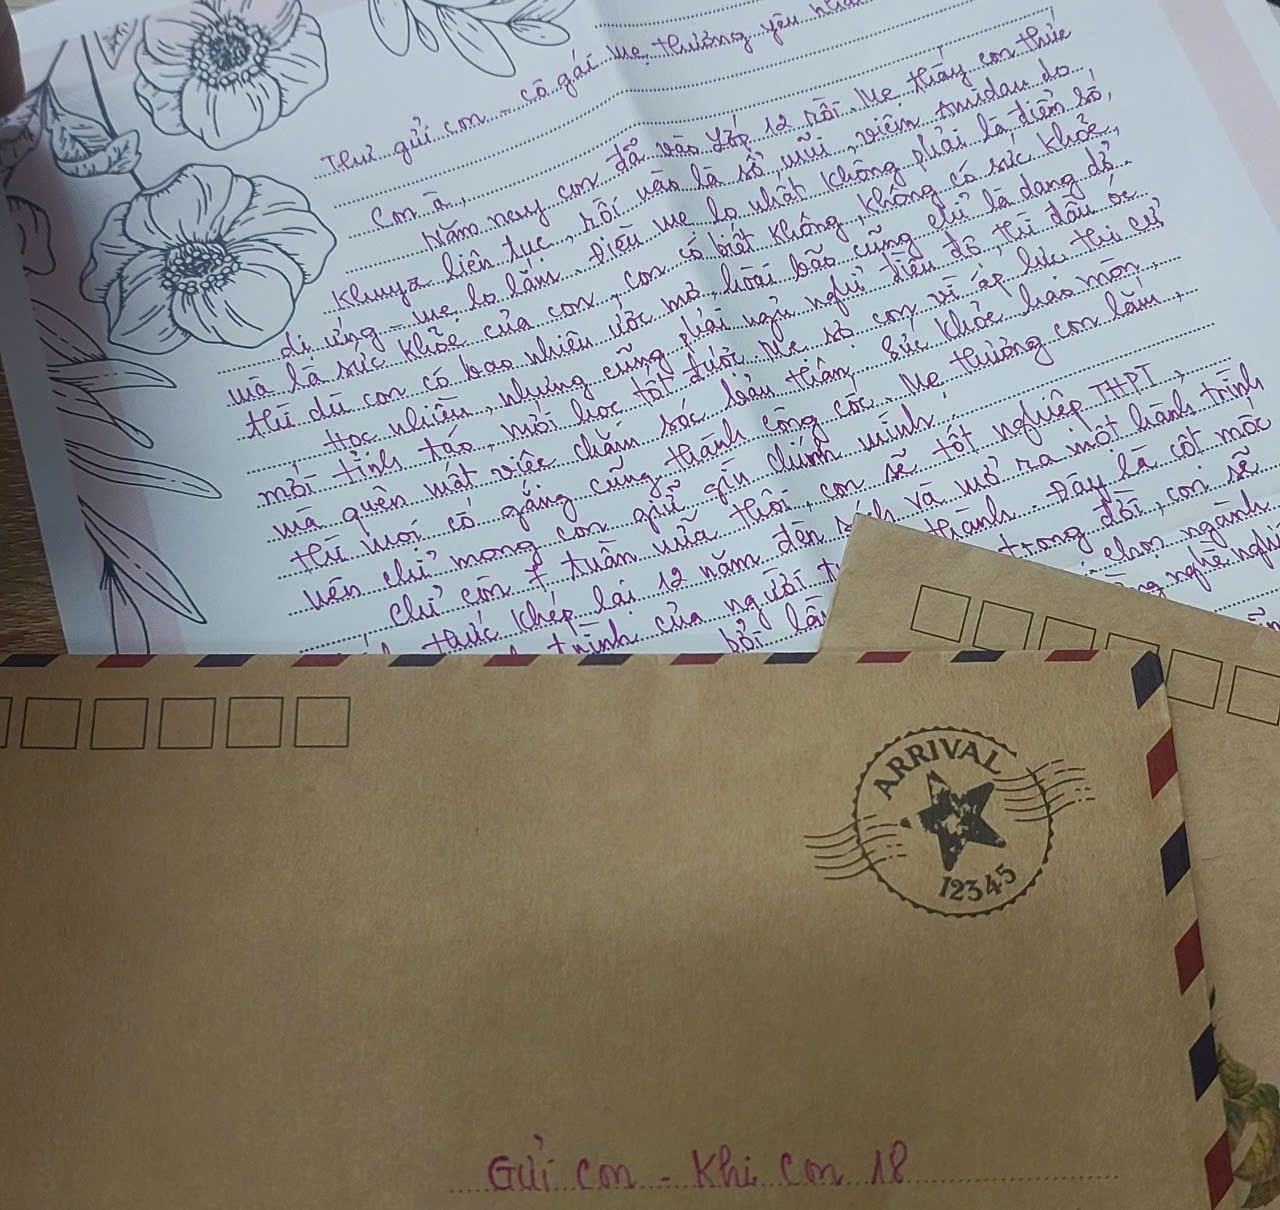 Thư gửi con - cô gái mẹ thương yêu nhất
Con à,
Năm nay con đã vào lớp 12 rồi. Mẹ thấy con thức
khuya liên tục, rồi vào là sổ mũi, viêm mũi do
dị ứng - mẹ lo lắm. Điều mẹ lo nhất không phải là điểm số,
mà là sức khỏe của con, con có biết không, không có sức khỏe,
thì dù con có bao nhiêu ước mơ, hoài bão cũng chỉ là dang dở.
Học nhiều, nhưng cũng phải ngủ nghỉ điều độ, thì đầu óc
mới tỉnh táo, mới học tốt được. Mẹ sợ con vì áp lực thi cử
mà quên mất việc chăm sóc bản thân. Sức khỏe hao mòn,
thì mọi cố gắng cũng thành công cốc. Mẹ thương con lắm,
nên chỉ mong con giữ gìn chính mình.
Chỉ còn 7 tuần nữa thôi, con sẽ tốt nghiệp THPT,
thức khép lại 12 năm đèn sách và mở ra một hành trình
trình của người thành. Đây là cột mốc
bởi lần trong đời, con sẽ
chọn ngành
nghề
ARRIVAL
12345
Gửi con - Khi con 18